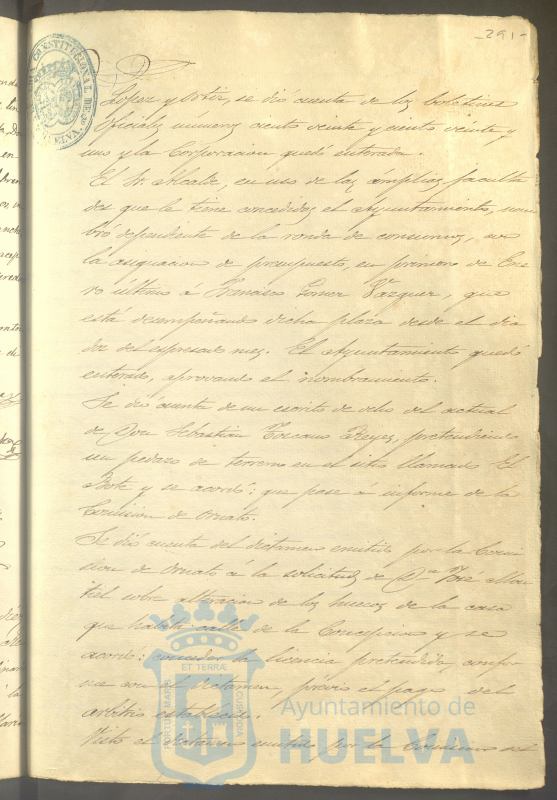 -291-
Lopez y Ortiz, se dió cuenta de los boletines
oficiales números ciento veinte y ciento veinte y
uno y la Corporacion quedó enterada.
El Sr. Alcalde, en uso de las amplias faculta
des que le tiene concedidas el Ayuntamiento, nom
bró dependiente de la ronda de consumos, con
la asignacion de presupuesto, en primero de Ene
ro último á Francisco Gomez Vazquez, que
está desempeñando dicha plaza desde el dia
dos del espresado mes. El Ayuntamiento quedó
enterado, aprovando el nombramiento.
Se dió cuenta de un escrito de ocho del actual
de Don Sebastian Toscano Reyes, pretendiendo
un pedazo de terreno en el sitio llamado El
Bote y se acordó: que pase á informe de la
Comision de Ornato.
Se dió cuenta del dictamen emitido por la Comi
sion de Ornato á la solicitud de Dn José
sobre alteracion de los huecos de la casa
que habita calle de la Concepcion y se
acordó: conceder la licencia pretendida, confor
me con el dictamen, previo el pago del
arbitrio establecido.
Visto el dictamen emitido por la Comision de
PORTUS MARIS ET TERRÆ CUSTODIA
Ayuntamiento de
HUELVA